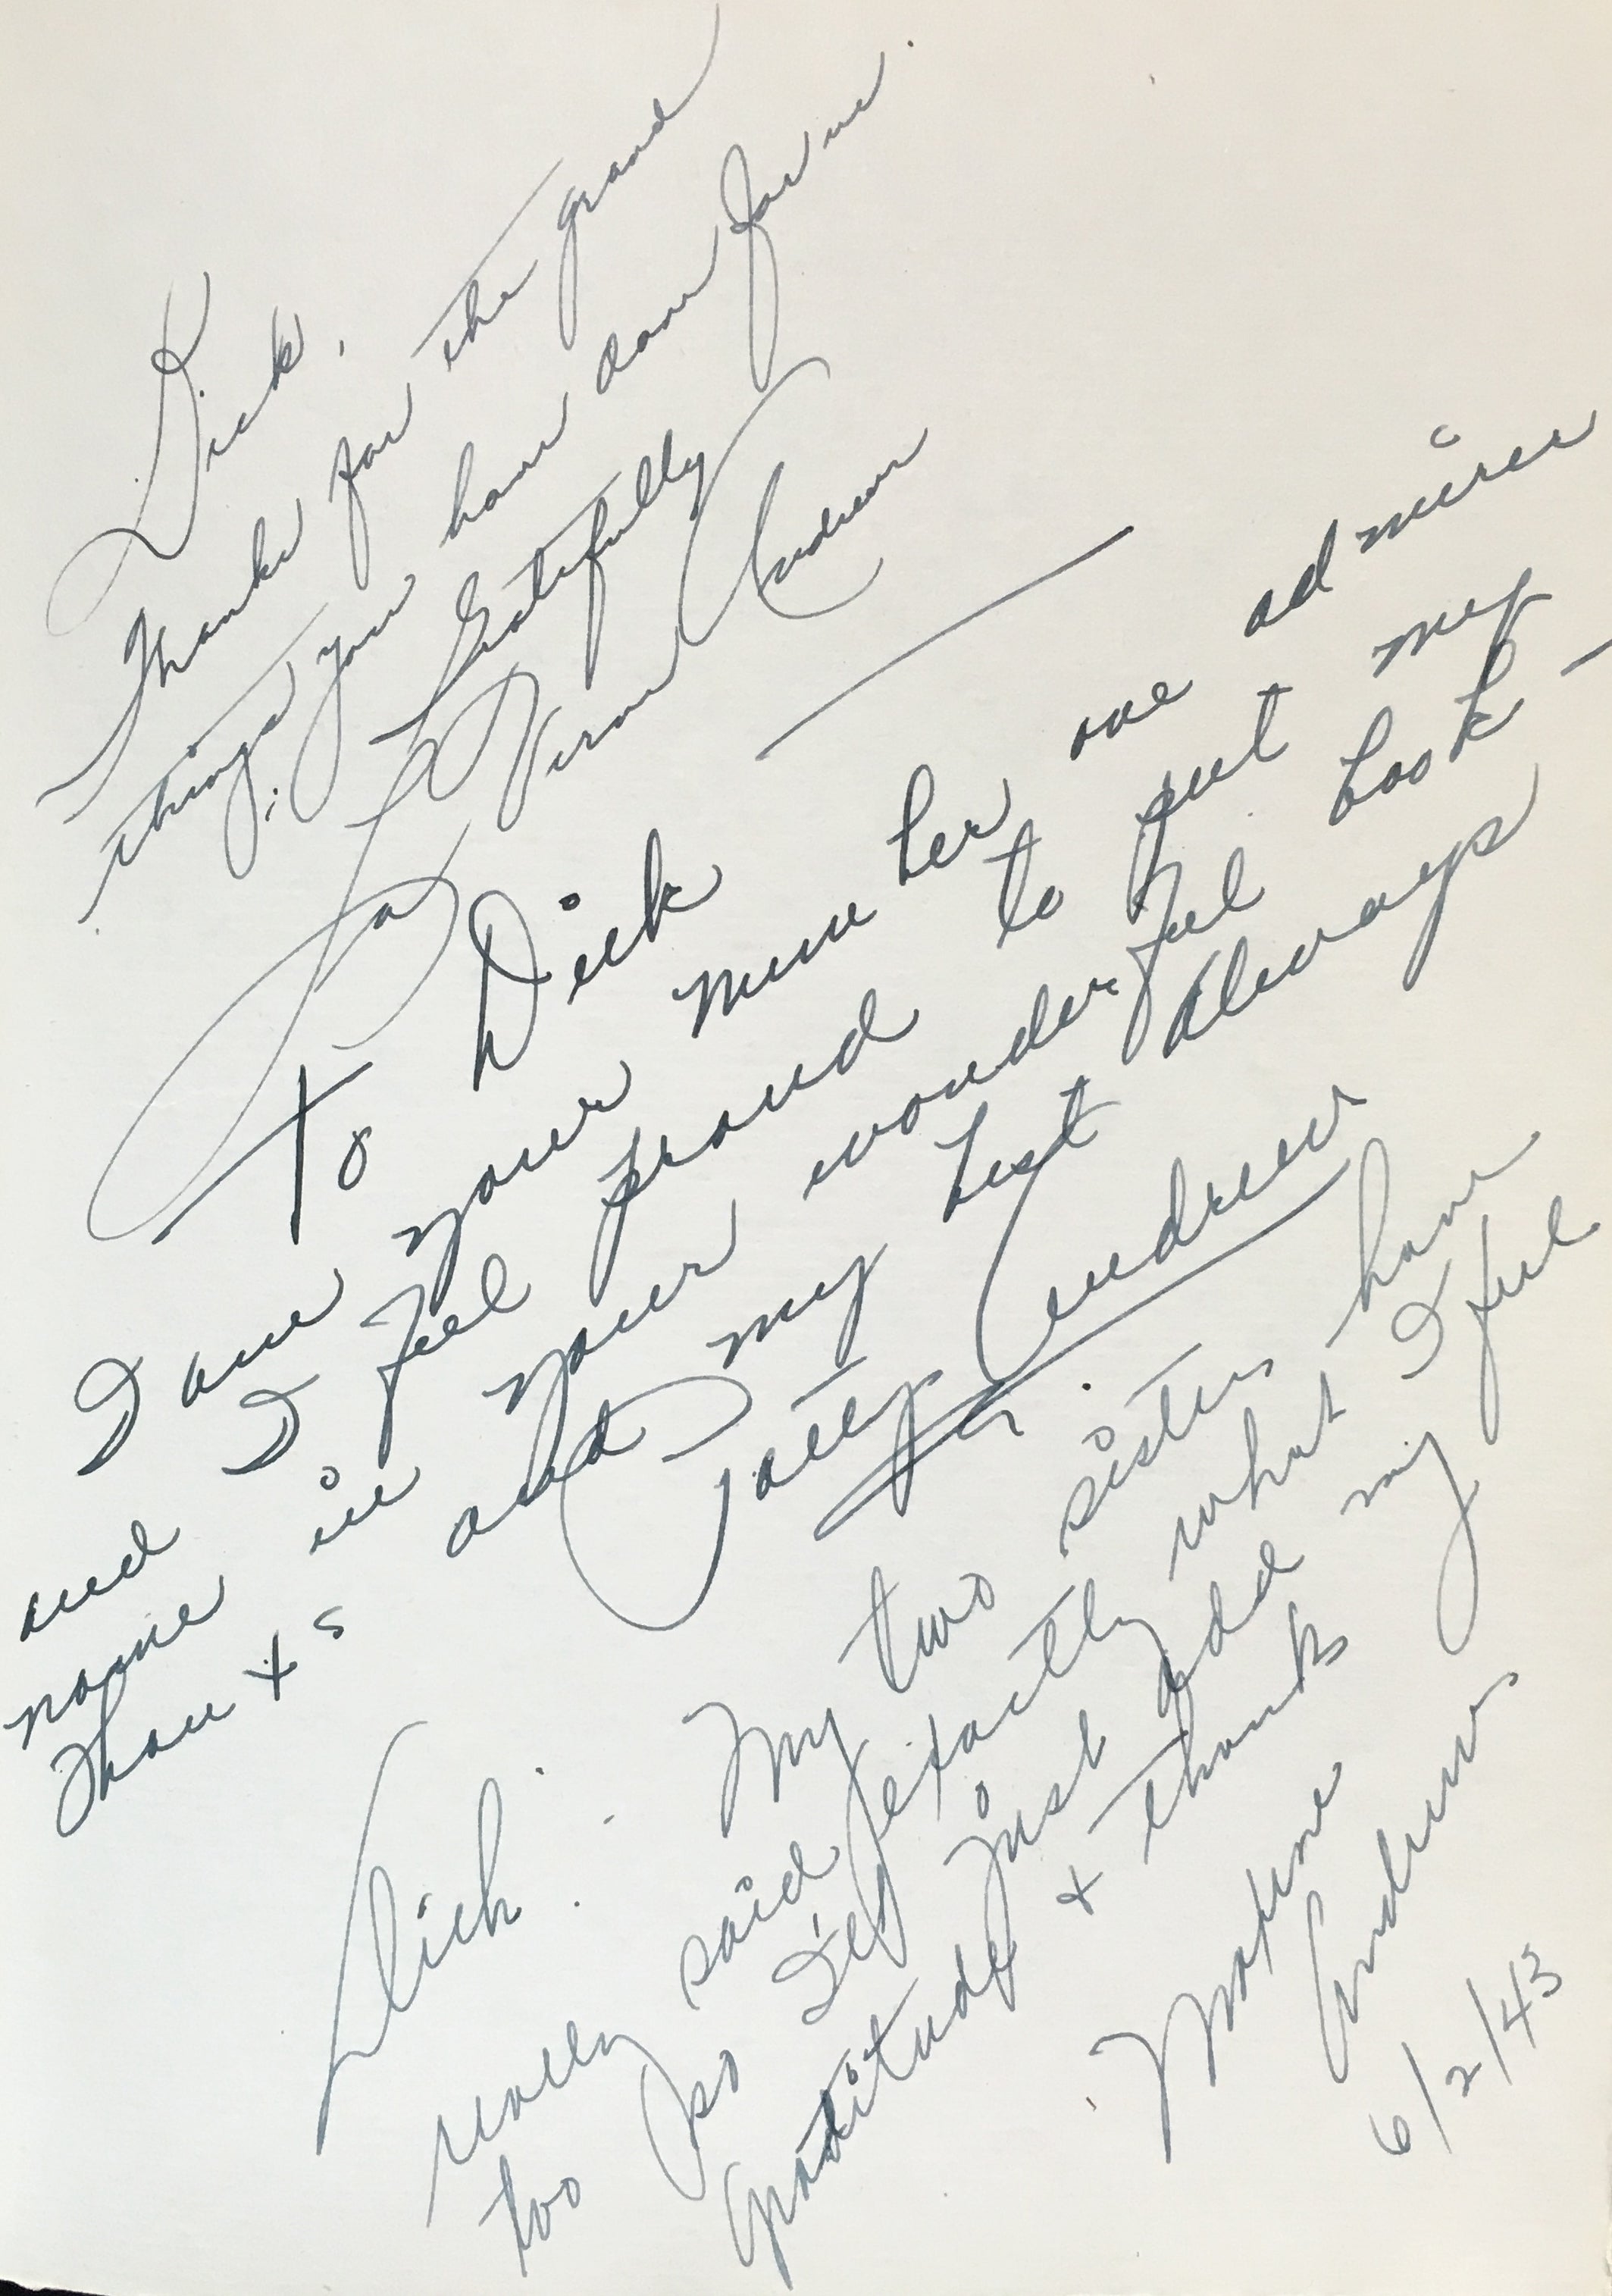 Dick,
Thanks for the grand
things you have done for us.
Gratefully
La Verne Andrews
To Dick
I am your number one admirer
and I feel proud to put my
name in your wonderful book –
Thanks and my best always
Patty Andrews
Dick: My two sisters have
really said exactly what I feel
too so I'll just add my
gratitude & thanks
Maxene
Andrews
6/2/43